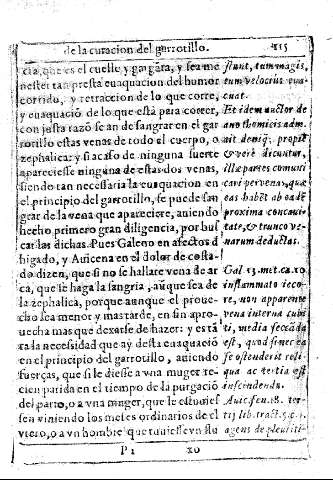 de la curacion del garrotillo. 115
cia, que es el cuello y gargãra, y sea me
nester tan presta euaquacion del humor
corrido, y retraccion de lo que corre,
y euaquaciõ de lo que està para correr,
con justa razõ se an de sangrar en el gar
rotillo estas venas de todo el cuerpo, o
zephalica: y si acaso de ninguna suerte
apareciesse ninguna de estas dos venas,
siendo tan necessaria la euaquacion en
el principio del garrotillo, se puede san
grar de la vena que apareciere, auiendo
hecho primero gran diligencia, por bus
car las dichas. Pues Galeno en afectos d
higado, y Auicena en el dolor de costa-
do dizen, que si no se hallare vena de ar
ca, que se haga la sangria, aũque sea de
la zephalica, porque aunque el proue-
cho sea menor y mas tarde, en fin apro-
uecha mas que dexarse de hazer: y es tã
ta la necesidad que ay desta euaquaciõ
en el principio del garrotillo, auiendo
fuerças, que si le diesse a vna muger re-
cien parida en el tiempo de la purgaciõ
del parto, o a vna muger, que le estuuies
sen viniendo los meses ordinarios de el
vtero, o a vn hombre que tuuiesse vn flu
P 2 xo
fluunt, tum magis,
tum velocius eua-
cuat.
Et idem auctor de
ano thomicis adm.
ait denique, propriè
& verè dicuntur,
illæ partes comuni
cari per venas, quæ
eas habẽt ab eadẽ
proxima concaui-
tate, & trunco ve-
narum deductas.
Gal 13. met. ca. 10
inflammato ieco-
re, non apparente
vena interna cubi
ti, media secãda
est, quod si nec ea
se ostenderit reli-
qua ac tertia est
inscindenda.
Auic. fen. 18. ter-
tij lib. tract. 5. c. 1.
agens de pleuriti-